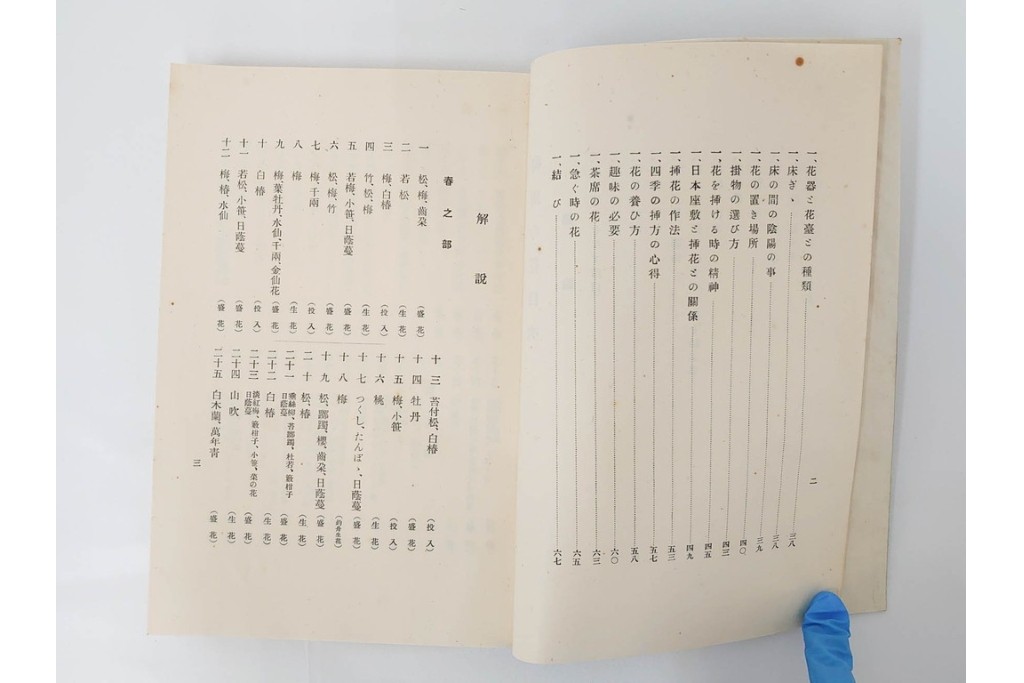 一、花器と花臺との種類……三八
一、床ぎゝ……三八
一、床の間の陰陽の事……三八
一、花の置き場所……三九
一、掛物の選び方……四〇
一、花を挿ける時の精神……四三
一、日本座敷と挿花との關係……四五
一、挿花の作法……四九
一、四季の挿方の心得……五三
一、花の養ひ方……五七
一、趣味の必要……五八
一、茶席の花……六〇
一、急ぐ時の花……六三
一、結び……六五
六七
二
解說
春之部
一 松、梅、齒朶 (盛花)
二 若松 (生花)
三 梅、白椿 (投入)
四 竹、松、梅 (生花)
五 若梅、小笹、日蔭蔓 (盛花)
六 松、梅、竹 (盛花)
七 梅、千兩 (投入)
八 梅 (生花)
九 梅、葉牡丹、水仙、千兩、金仙花 (盛花)
十 白椿 (投入)
十一 若松、小笹、日蔭蔓 (盛花)
十二 梅、椿、水仙 (盛花)
十三 苔付松、白椿 (投入)
十四 牡丹 (盛花)
十五 梅、小笹 (投入)
十六 桃 (生花)
十七 つくし、たんぽゝ、日蔭蔓 (盛花)
十八 梅
十九 松、躑躅、櫻、齒朶、日蔭蔓 (盛花)
二十 松、椿 (生花)
二十一 垂絲柳、躑躅、杜若、藪柑子 日蔭蔓 (盛花)
二十二 白椿 (生花)
二十三 紅梅、藪柑子、小笹、菜の花 日蔭蔓 (盛花)
二十四 山吹 (生花)
二十五 白木蘭、萬年靑 (盛花)
三